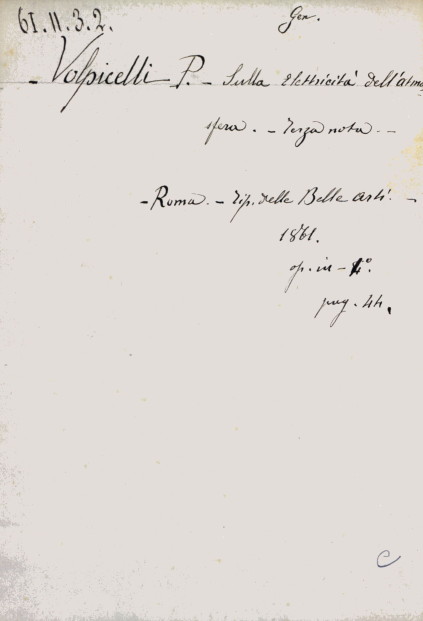 61.11.3.2.
Gen.
- Volpicelli P. - Sulla Elettricità dell'atmo
sfera. - Terza nota. -
- Roma. - Tip. delle Belle arti. -
1861.
op. in - 4º.
pag. 44.
C